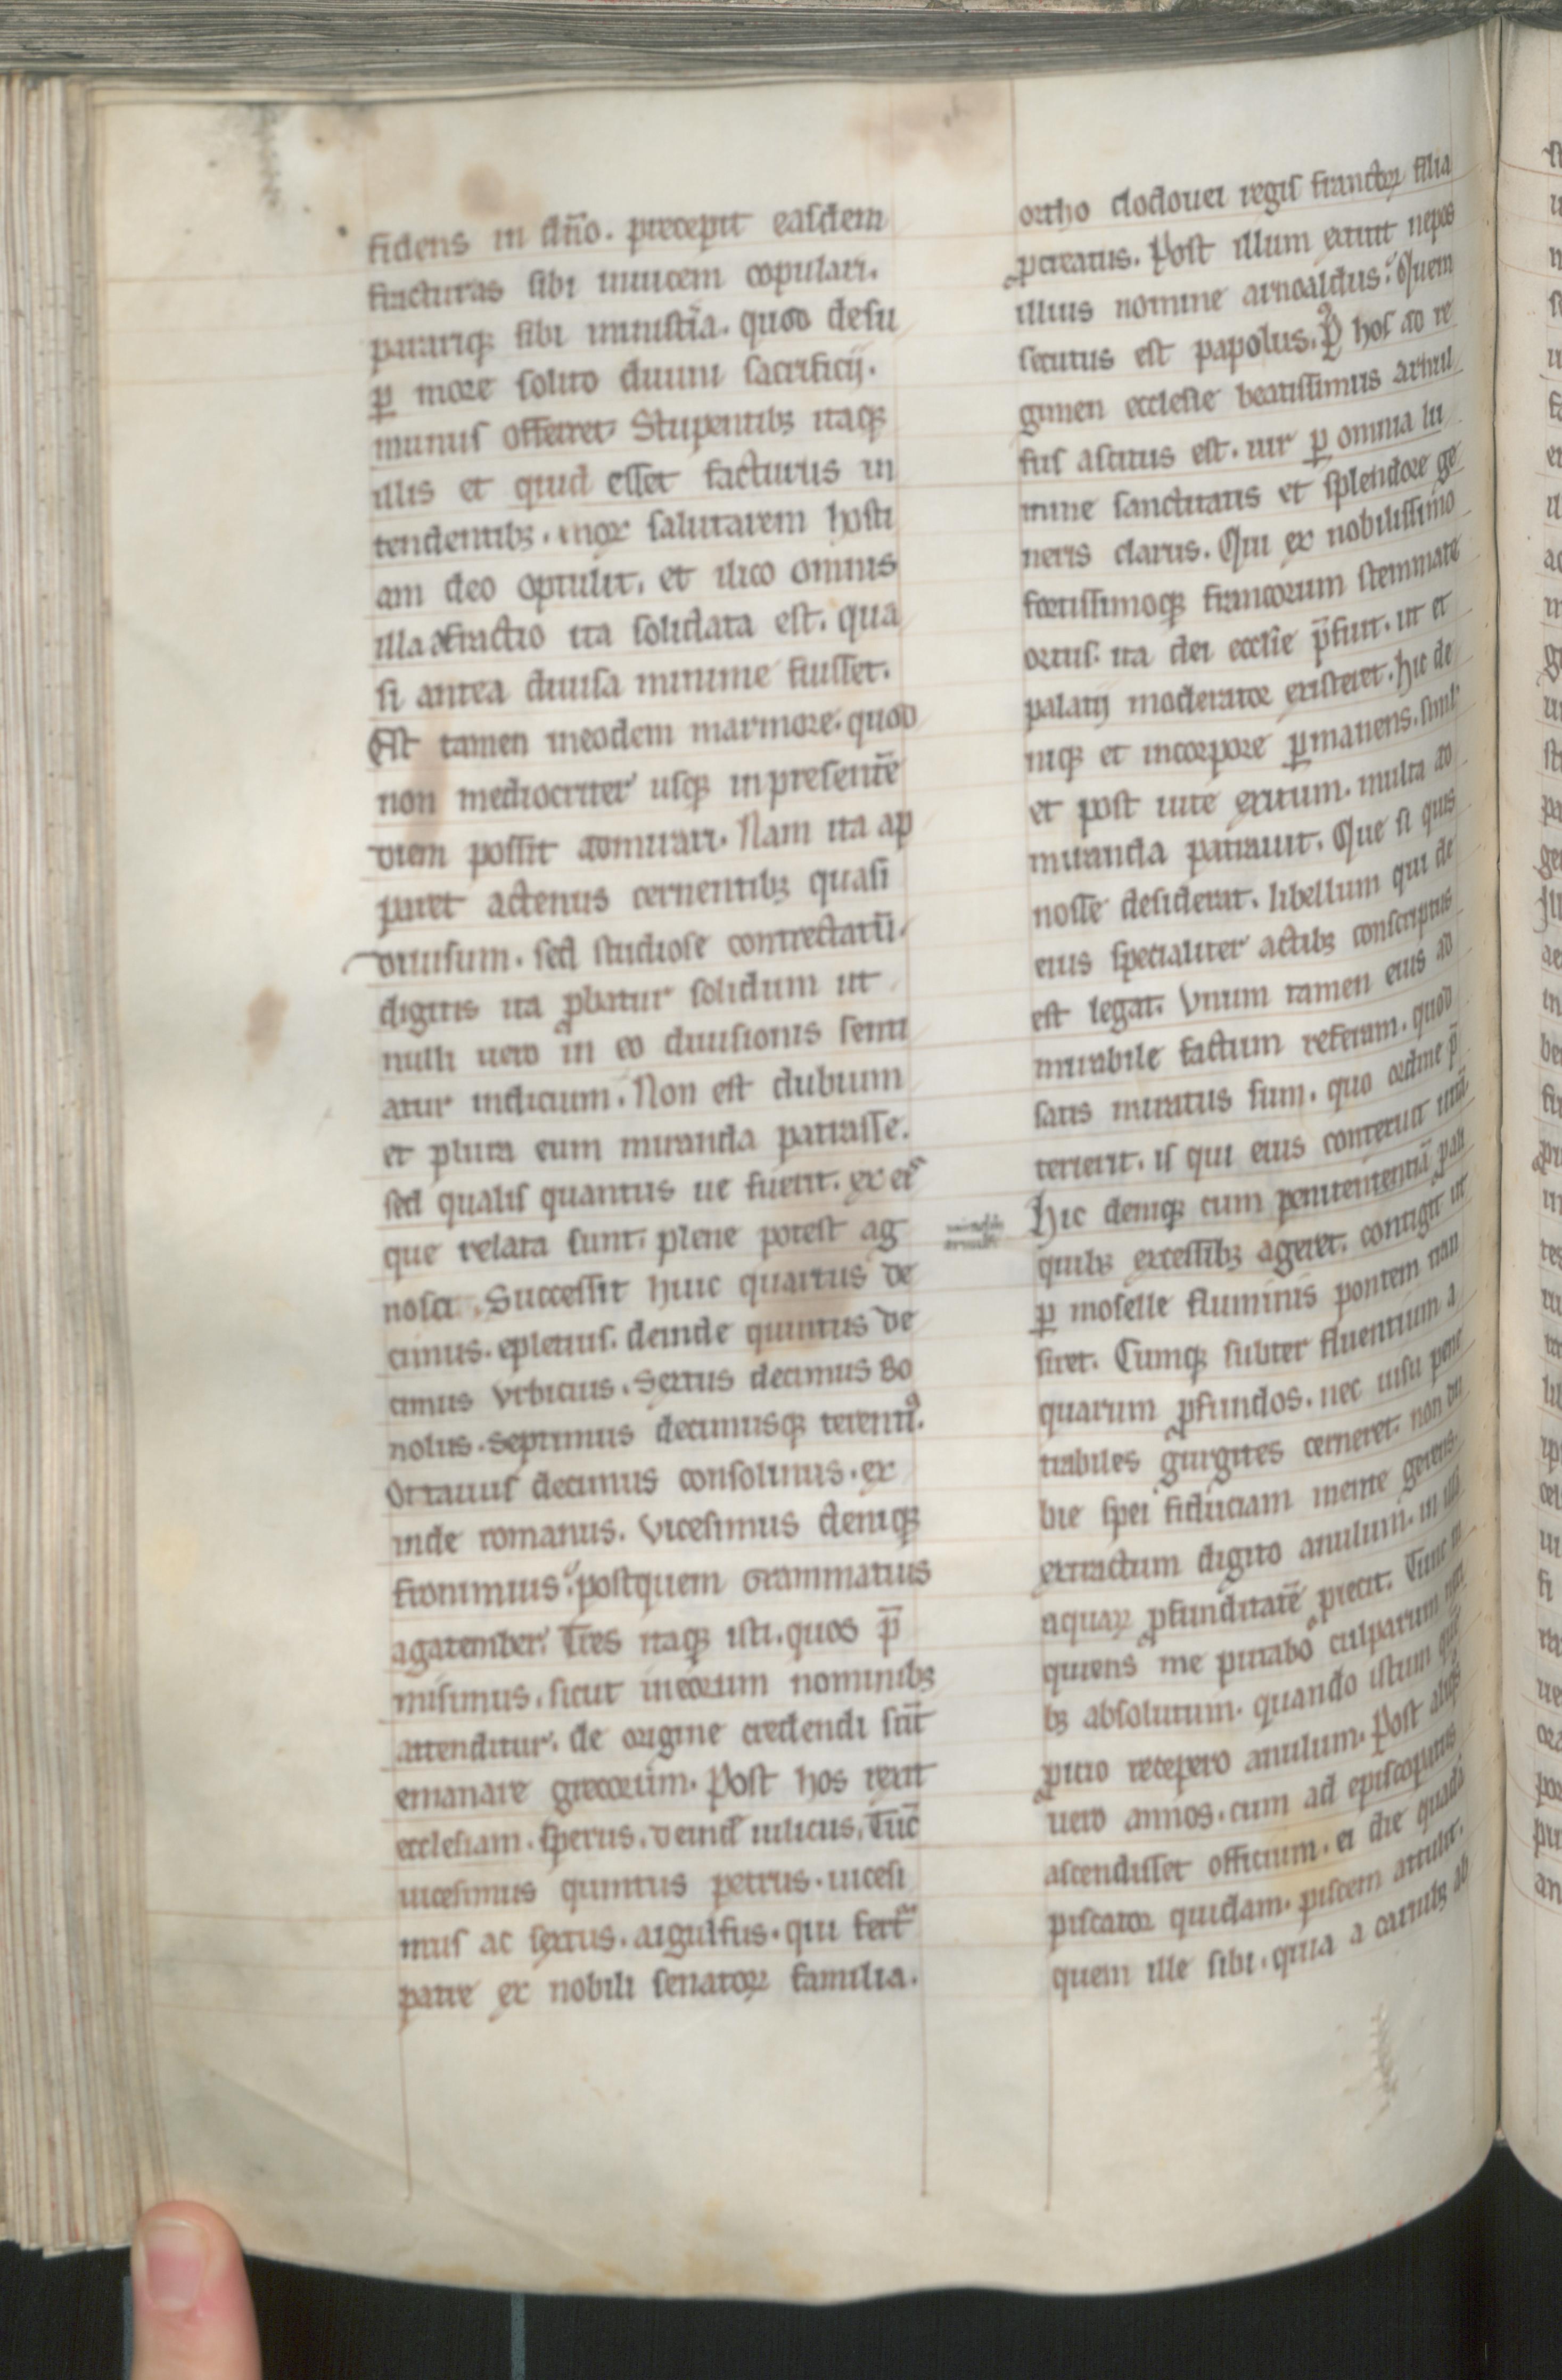 fidens in dño. precepit easdem
fracturas sibi inuicem copulari.
pararique sibi ministr̃ia. quod desu
ꝑ more solito diuini sacrificij.
munus offerret. Stupentibꝫ itaqꝫ
illis et quid esset facturus in
tendentibꝫ. mox salutarem hosti
am deo optulit. et ilico omnis
illa fractio ita solidata est. qua
si antea diuisa minime fuisset.
Est tamen ineodem marmore. quod
non mediocriter usqꝫ inpresentē
diem possit admirari. Nam ita ap
paret actenus cernentibꝫ quasi
diuisum. sed studiose contrectatū.
digitis ita ꝓbatur solidum ut
nulli uero in eo diuisionis senti
atur indicium. Non est dubium
et plura eum miranda patrasse.
sed qualis quantus ue fuerit. ex eiˢ
que relata sunt. plene potest ag
nosci. Successit huic quartus de
cimus. epletius. deinde quintus de
cimus Vrbicius. Sextus decimus Bo
nolus. Septimus decimusqꝫ terentiꝰ.
Octauus decimus consolinus. ex
inde romanus. Vicesimus deniqꝫ
fronimius. postquem Grammatius
agatember. Tres itaqꝫ isti. quos p̄
misimus. sicut ineorum nominibꝫ
attenditur. de origine credendi sūt
emanare grecorum. Post hos rexit
ecclesiam. sperus. deind uilicus. Tūc
uicesimus quintus petrus. uicesi
mus ac sextus. aigulfus. qui fert
patre ex nobili senatoꝝ familia.
ortho clodouei regis francoꝝ filia
ꝓcreatus. Post illum extitit nepos
illius nomine arnoaldus. Quem
secutus est papolus. Pꝰ hos ad re
gimen ecclesie beatissimus arnul
fus ascitus est. uir ꝑ omnia lu
mine sanctitatis et splendore ge
neris clarus. Qui ex nobilissimo
fortissimoqꝫ francorum stemmate
ortus. ita dei eccl̄ie p̄fuit. ut et
palatij moderator existeret. Hic de
niqꝫ et incorpore ꝑmanens. simul
et post uite exitum. multa ad
miranda patrauit. Que si quis
nosse desiderat. libellum qui de
eius specialiter actibꝫ conscriptus
est legat. Vnum tamen eius ad
mirabile factum referam. quod
satis miratus sum. quo ordine p̄
terierit. is qui eius conteruit uitā.
Hic deniqꝫ cum penitentiā ꝓ ali
quibꝫ excessibꝫ ageret. contigit ut
ꝑ moselle fluminis pontem tran
siret. Cumqꝫ subter fluentium a
quarum ꝓfundos. nec uisu pene
trabiles gurgites cerneret. non du
bie spei fiduciam mente gerens.
extractum digito anulum. in illā
aquaꝝ ꝓfunditatē ꝓiecit. Tunc in
quiens me putabo culparum nexi
bꝫ absolutum. quando istum que
ꝓicio recepero anulum. Post aliqͦs
uero annos. cum ad episcopatus
ascendisset officium. ei die quadā
piscator quidam. piscem attulit.
quem ille sibi. quia a carnibꝫ ab